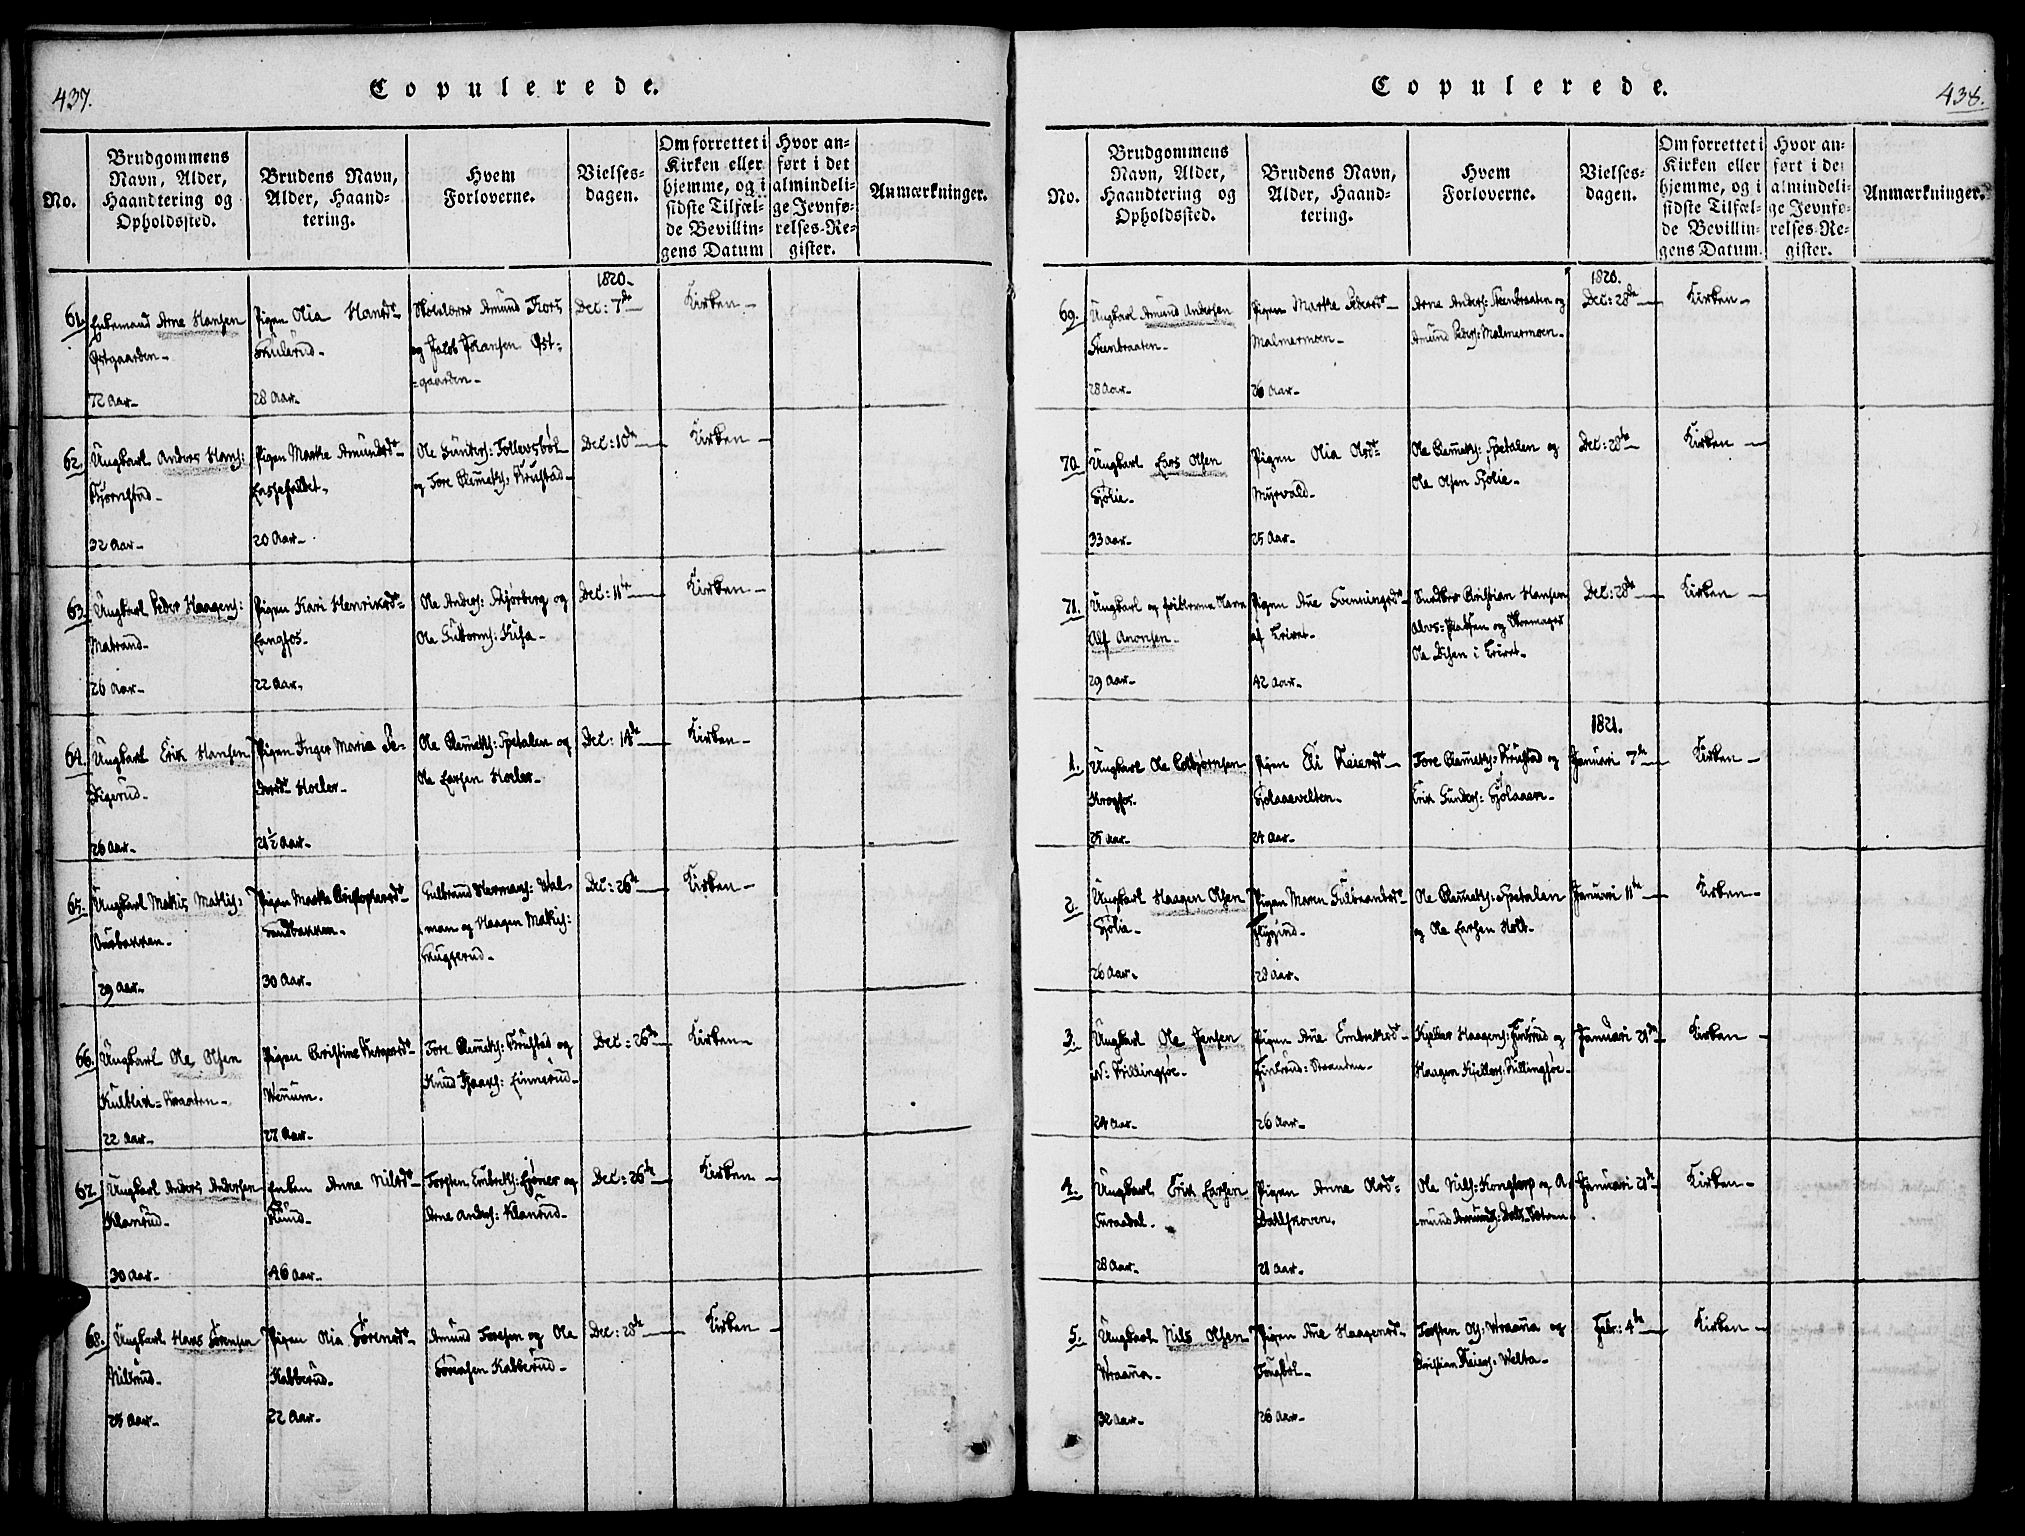 437.
Copulerede.
No.
Brudgommens
Navn, Alder,
Haandtering og
Opholdssted.
Brudens Navn,
Alder, Haand-
tering.
Hvem
Forloverne.
Vielses-
dagen.
Om forrettet i
Kirken eller
hjemme, og i
sidste Tilfæl-
de Bevillin-
gens Datum
Hvor an-
ført i det
almindeli-
ge Jevnfø-
relses-Re-
gister.
Anmærkninger.
1820.
61.
Enkemand Arne Hansen
Østgaarden.
72 Aar.
Pigen Olia Hansdr
Skulerud.
28 Aar.
Skolelærer Amund Fors
og Jacob Johansen Øst-
gaarden.
Dec: 7de
Kirken
62.
Ungkarl Anders Hans:
Kjørnstad.
32 Aar.
Pigen Marthe Amundsdr
20 Aar.
Ole Gunders:
og Tore Clemets: Krustad
Dec: 10de
Kirken
63.
Ungkarl Peder Haagens:
Matrand.
26 Aar.
Pigen Kari Henriksdr
Langfos.
22 Aar.
Ole Anders: Skjørberg og
Ole Guttorms: Kisa.
Dec: 11te
Kirken
64.
Ungkarl Erik Hansen
Digerud.
26 Aar.
Pigen Inger Maria Pe-
dersdr Hoeler.
21½ Aar.
Ole Clemets: Spetalen og
Ole Larsen Hoeler.
Dec: 14de
Kirken
65.
Ungkarl Mathis Mathis:
29 Aar.
Pigen Marthe Christophersdr
Sandbakken.
30 Aar.
Gulbrand Hermans: Wal-
man og Haagen Mathis:
Skuggerud.
Dec: 26de
Kirken
66.
Ungkarl Ole Olsen
Kulblik-Braaten
22 Aar.
Pigen Christine
Wenum.
27 Aar.
Tore Clemets: Krustad og
Knud Isaaks: Linnerud.
Dec: 26de
Kirken
67.
Ungkarl Anders Andersen
Klanrud.
30 Aar.
Enken Anne Nilsdr
Rund.
46 Aar.
Torsten Embrets: Ejørner og
Arne Anders: Klanrud.
Dec: 26de
Kirken
68.
Ungkarl Hans Sørensen
Nilsrud.
25 Aar.
Pigen Olia Sørensdr
Kabberud.
22 Aar.
Amund Toresen og Ole
Sørensen Kabberud.
Dec: 28de
Kirken
438.
Copulerede.
No.
Brudgommens
Navn, Alder,
Haandtering og
Opholdssted.
Brudens Navn,
Alder, Haand-
tering.
Hvem
Forloverne.
Vielses-
dagen.
Om forrettet i
Kirken eller
hjemme, og i
sidste Tilfæl-
de Bevillin-
gens Datum.
Hvor an-
ført i det
almindeli-
ge Jevnfø-
relses-Re-
gister.
Anmærkninger.
1820.
69.
Ungkarl Amund Andersen
Steenbraaten.
28 Aar.
Pigen Marthe Pedersdr
Malmermoen.
26 Aar.
Arne Anders: Steenbraaten og
Amund Peders: Malmermoen.
Dec: 28de
Kirken
70.
Ungkarl Lars Olsen
Sjølie.
33 Aar.
Pigen Olia Olsdr
Myrvald.
25 Aar.
Ole Clemets: Spetalen og
Ole Olsen Sjølie.
Dec: 28de
Kirken
71.
Ungkarl og
Alf Aronsen.
29 Aar.
Pigen Ane Svenningsdr
42 Aar.
Christian Hansen
og Skomager
Ole Disen i
Dec: 28de
Kirken
1821.
1.
Ungkarl Ole Colbjørnsen
Krogfos.
25 Aar.
Pigen Eli Reiersdr
Sjølaaevelten.
24 Aar.
Tore Clemets: Krustad og
Erik Gunders: Sjølaaen.
Januari 7de
Kirken
2.
Ungkarl Haagen Olsen
Sjølie.
26 Aar.
Pigen Maren Gulbrandsdr
Flygind.
28 Aar.
Ole Clemets: Spetalen
og Ole Larsen Holt.
Januari 11te
Kirken
3.
Ungkarl Ole Jensen
N: Killingføe.
24 Aar.
Pigen Ane Embretsdr
Finsrud-Braaten.
26 Aar.
Kjeller Haagens: Finsrud og
Haagen Kjellers: Killingføe.
Januari 21de
Kirken
4.
Ungkarl Erik Larsen
Furaadal.
28 Aar.
Pigen Anne Olsdr
Dallskoven.
21 Aar.
Ole Nils: Kongtorp og A-
mund Amunds:
Januari 21de
Kirken
5.
Ungkarl Nils Olsen
Wraana.
32 Aar.
Pigen Ane Haagensdr
26 Aar.
Torsten Ols: Wraana og
Christian Reiers: Welta.
Febr: 4de
Kirken